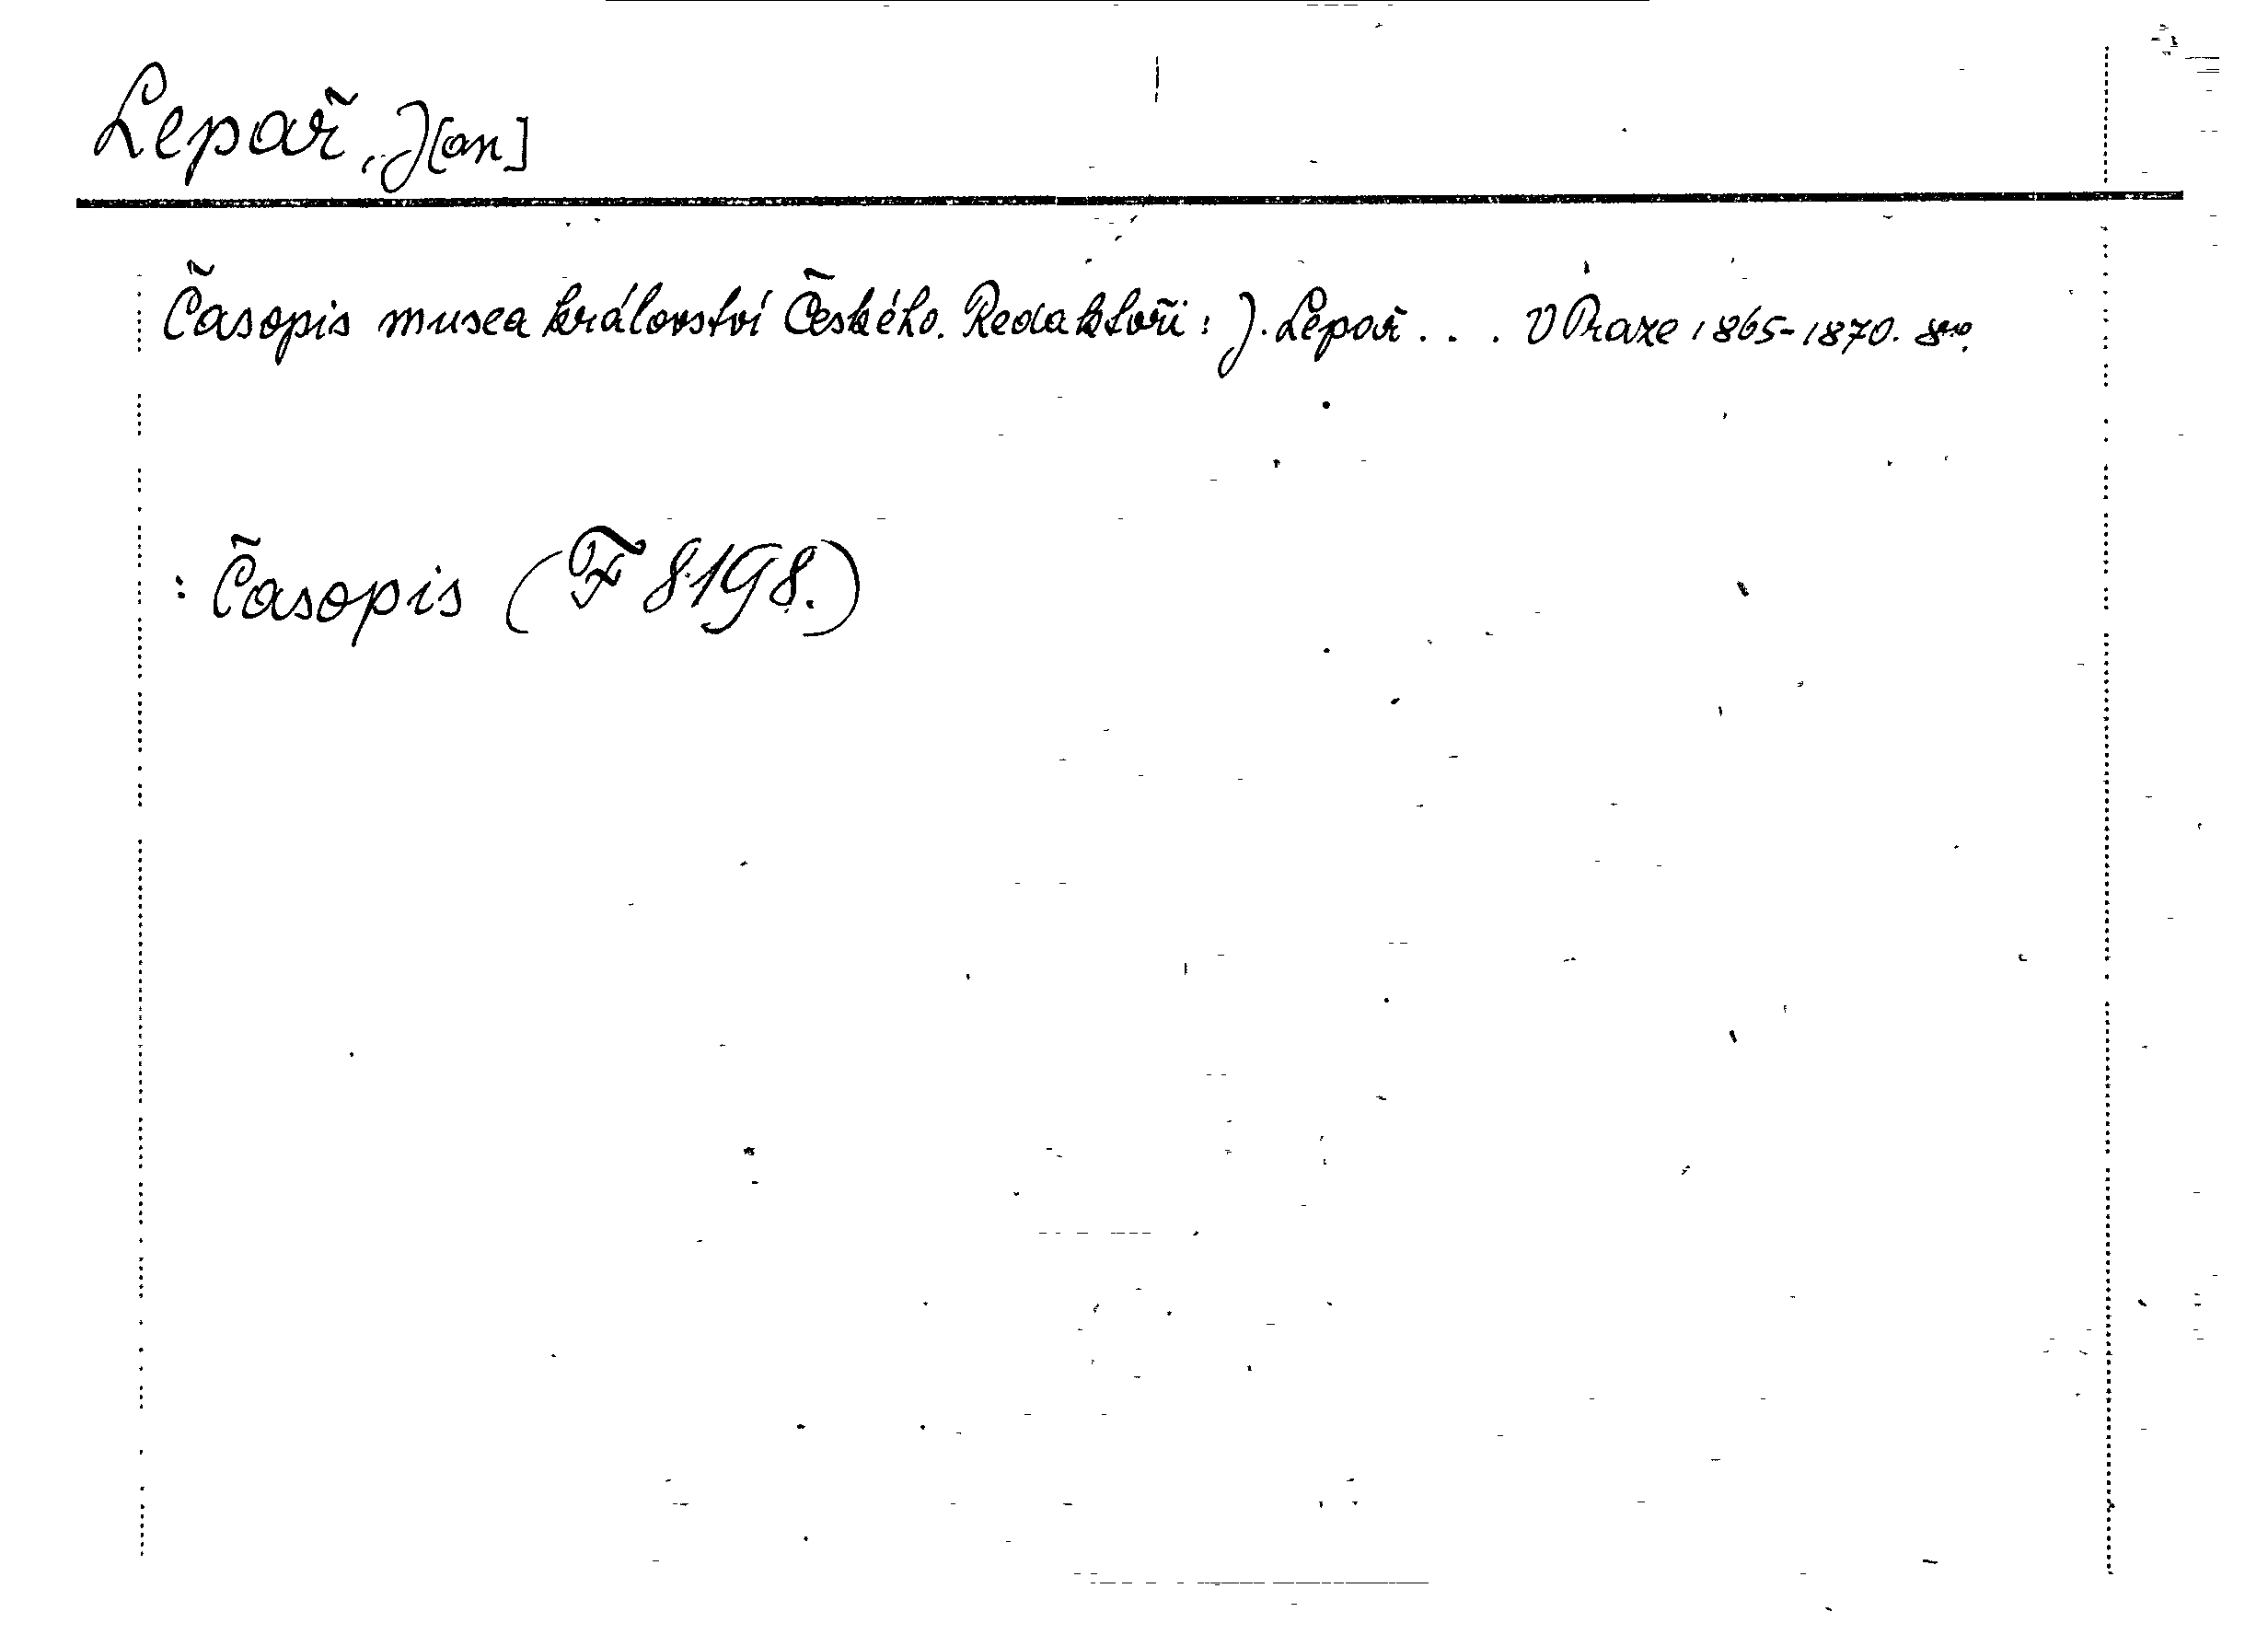 Lepař, J[an]
Časopis musea království Českého. Redaktoři: J. Lepař... V Praze 1865-1870. 8vo.
: Časopis (F 8198.)